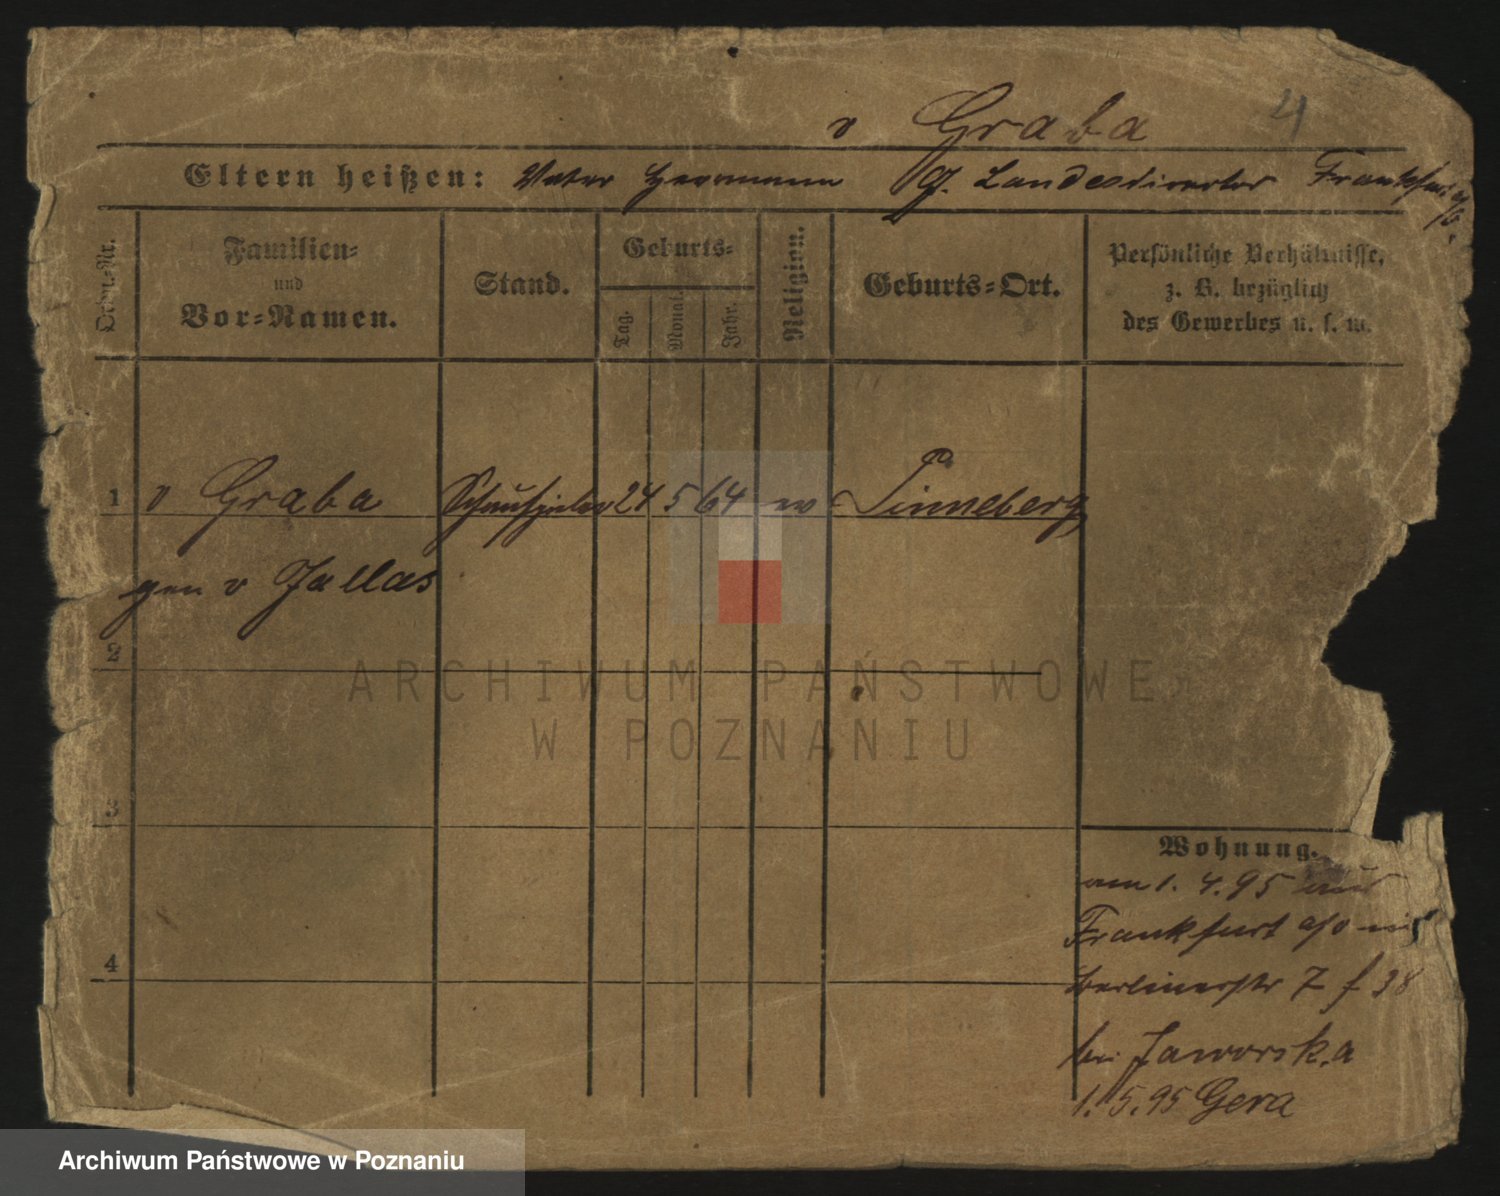 v Graba
4
Eltern heißen: Vater Hermann G. Landesdirector Frankfurt a/O.
Ordn.-Nr.
Familien- und Vor-Namen.
Stand.
Geburts-
Tag.
Monat.
Jahr.
Religion.
Geburts-Ort.
Persönliche Verhältnisse, z. B. bezüglich des Gewerbes u. s. w.
1 v Graba Schauspieler 24 5 64 ev Pinneberg
gen v Jallas
2
3
4
Wohnung.
am 1. 4. 95 aus
Frankfurt a/O
Berlinerstr 7 f 38
bei Jaworska
1. 5. 95 Gera
ARCHIWUM PAŃSTWOWE
W POZNANIU
Archiwum Państwowe w Poznaniu